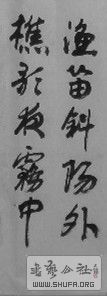 渔笛斜阳外
樵歌夜雾中
书法公社
WWW.SHUFA.ORG